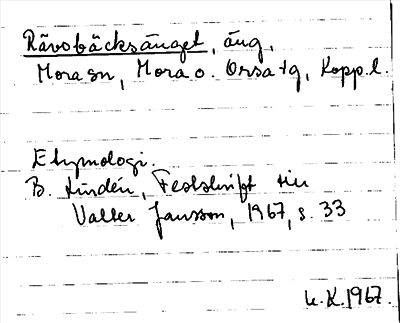 Rävobäcksänget, äng,
Mora sn, Mora o. Orsa tg, Kopp. l.
Etymologi.
B. Lindén, Festskrift till
Valter Jansson, 1967, s. 33
U.K. 1967.